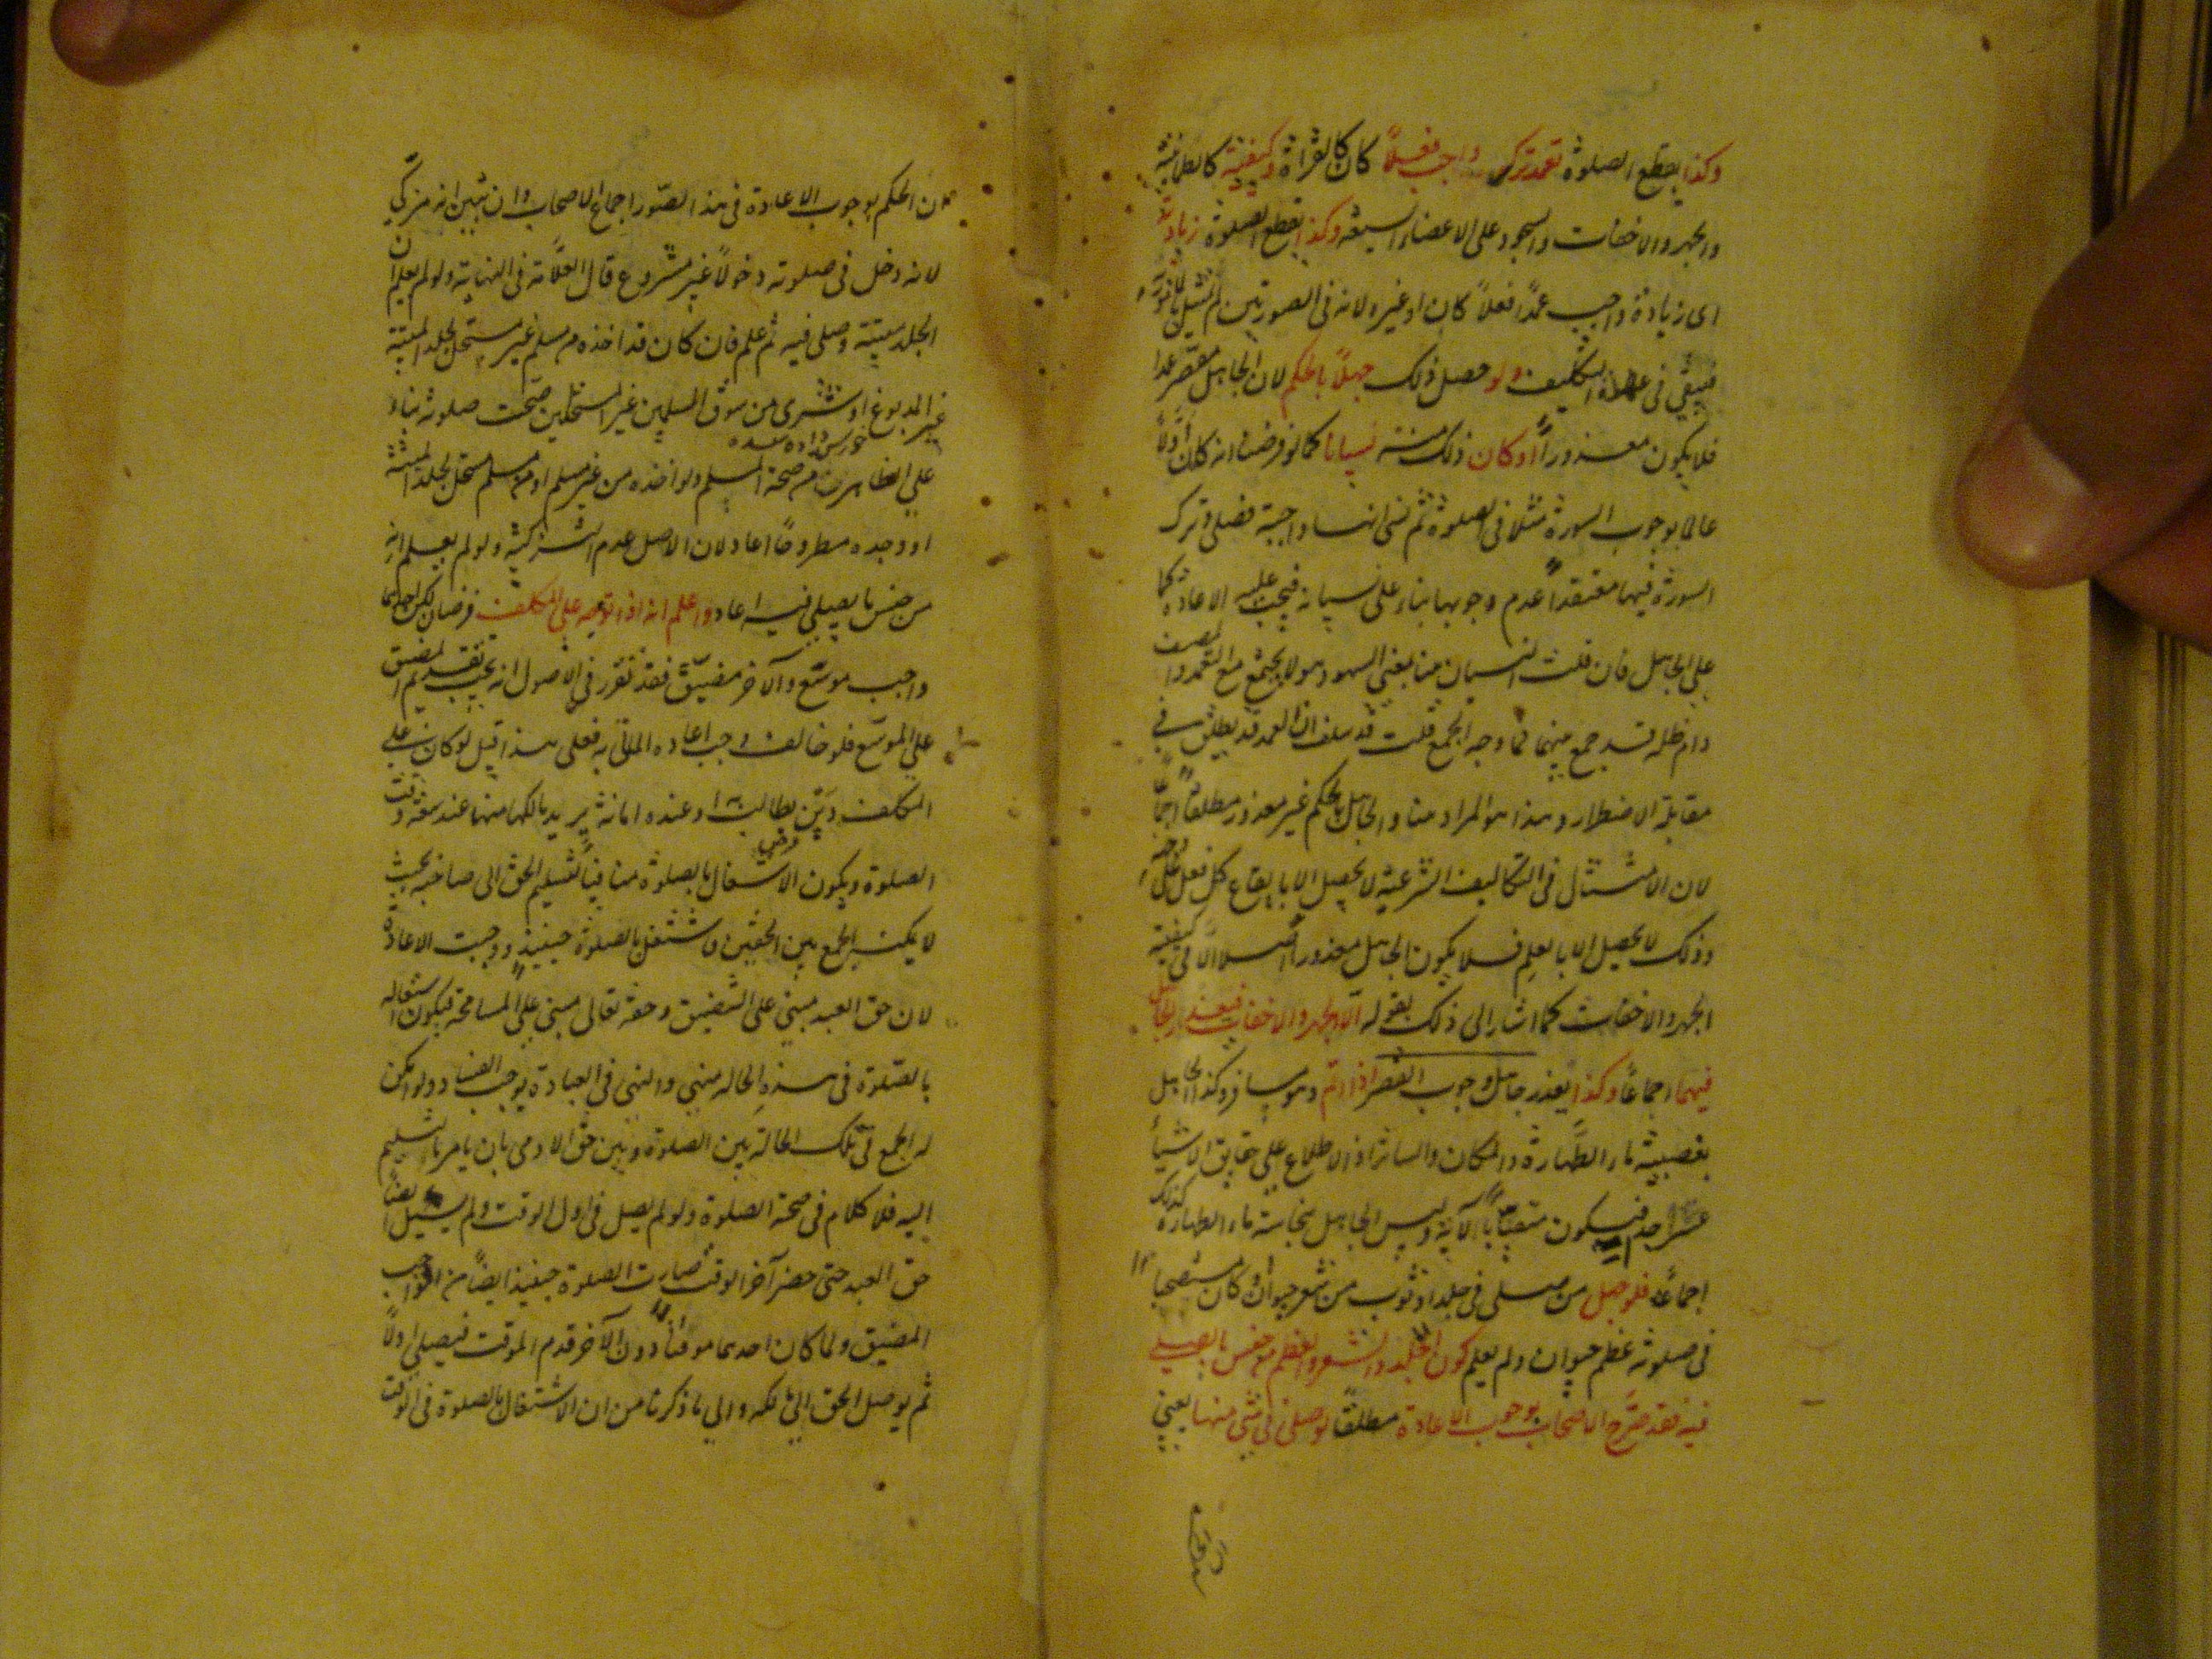 وكذا يقطع الصلوة تعمد ترك واجب فعلاً كان كالقراة وكيفية كالطمانينة
والجهر والاخفات والسجود على الاعضاء السبعة وكذا يقطع الصلوة زيادته
اى زيادة واجب عمدًا فعلاً كان او غيره لانه فى الصورتين لم يمتثل
فيبقى فى عهدة التكليف ولو حصل ذلك جهلاً بالحكم لان الجاهل مقصر عمدا
فلا يكون معذوراً او كان ذلك منه نسيانا كما لو فرضنا انه كان اولاً
عالما بوجوب السورة مثلا فى الصلوة ثم نسى انها واجبة فصلى وترك
السورة فيها معتقداً عدم وجوبها بناء على نسيانه فيجب عليه الاعادة كما
على الجاهل فان قلت النسيان هنا بمعنى السهو وهو لا يجتمع مع التعمد والمصنف
دام ظله قد جمع بينهما فما وجه الجمع قلت قد سلف ان العمد قد يطلق فى
مقابلة الاضطرار وهذا هو المراد هنا والجاهل بالحكم غير معذور مطلقاً اجماعاً
لان الامتثال فى التكاليف الشرعية لا يحصل الا بايقاع كل فعل على وجهه
وذلك لا يحصل الا بالعلم فلا يكون الجاهل معذوراً اصلا الا فى كيفية
الجهر والاخفات كما اشار الى ذلك بقوله الا الجهر والاخفات فيعذر الجاهل
فيهما اجماعًا وكذا يعذر جاهل وجوب القصر اذا اتم وهو مسافر وكذا الجاهل
بغصبية ماء الطهارة والمكان والساتر اذ الاطلاع على حقايق الاشياء
عسر جدا فيكون متعباً بالآية وليس الجاهل بنجاسة ماء الطهارة كذلك
اجماعًا فلو صلى من صلى فى جلد او ثوب من شعر حيوان او كان مستصحبا
فى صلوته عظم حيوان ولم يعلم كون الجلد والشعر والعظم من جنس ما يصلى
فيه فقد صرح الاصحاب بوجوب الاعادة مطلقًا لو صلى فى شئ منها يعنى
ان الحكم بوجوب الاعادة فى هذه الصور اجماع الاصحاب وان تبين انه مزكى
لانه دخل فى صلوته دخولاً غير مشروع قال العلامة فى النهاية ولو لم يعلم ان
الجلد ميتة وصلى فيه ثم علم فان كان قد اخذه من مسلم غير مستحل لجلد الميتة
غير المدبوغ او شرى من سوق المسلمين غير المستحلين صحت صلوته بناء
على الظاهر من صحة المسلم ولو اخذه من غير مسلم او من مسلم مستحل لجلد الميتة
او وجده مطروحًا اعاد لان الاصل عدم التزكية ولو لم يعلم انه
من جنس ما يصلى فيه اعاد واعلم انه اذا توجه على المكلف فرضان لكن احدهما
واجب موسّع والآخر مضيّق فقد تقرر فى الاصول انه يجب تقديم المضيق
على الموسع فلو خالف وجب اعادة الماتى به فعلى هذا قيل لو كان على
المكلف دين يطالب به او عنده امانة يريد مالكها منها عند سعة وقت
الصلوة ويكون الاشتغال بالصلوة منافياً لتسليم الحق الى صاحبه بحيث
لا يمكنه الجمع بين الحقين فاشتغل بالصلوة حينئذٍ ووجبت الاعادة
لان حق العبد مبنى على التضييق وحقه تعالى مبنى على المسامحة فيكون اشتغاله
بالصلوة فى هذه الحالة منهى والنهى فى العبادة يوجب الفساد ولو امكن
له الجمع فى تلك الحالة بين الصلوة وبين حق الادمى بان يامر بالتسليم
اليه فلا كلام فى صحة الصلوة ولو لم يصل فى اول الوقت ولم يسلم ايضًا
حق العبد حتى حضر آخر الوقت صارت الصلوة حينئذ ايضًا من الواجب
المضيق ولما كان احدهما موقتاً دون الآخر قدم الموقت فيصلى اولاً
ثم يوصل الحق الى مالكه والى ما ذكرنا من ان الاشتغال بالصلوة فى الوقت